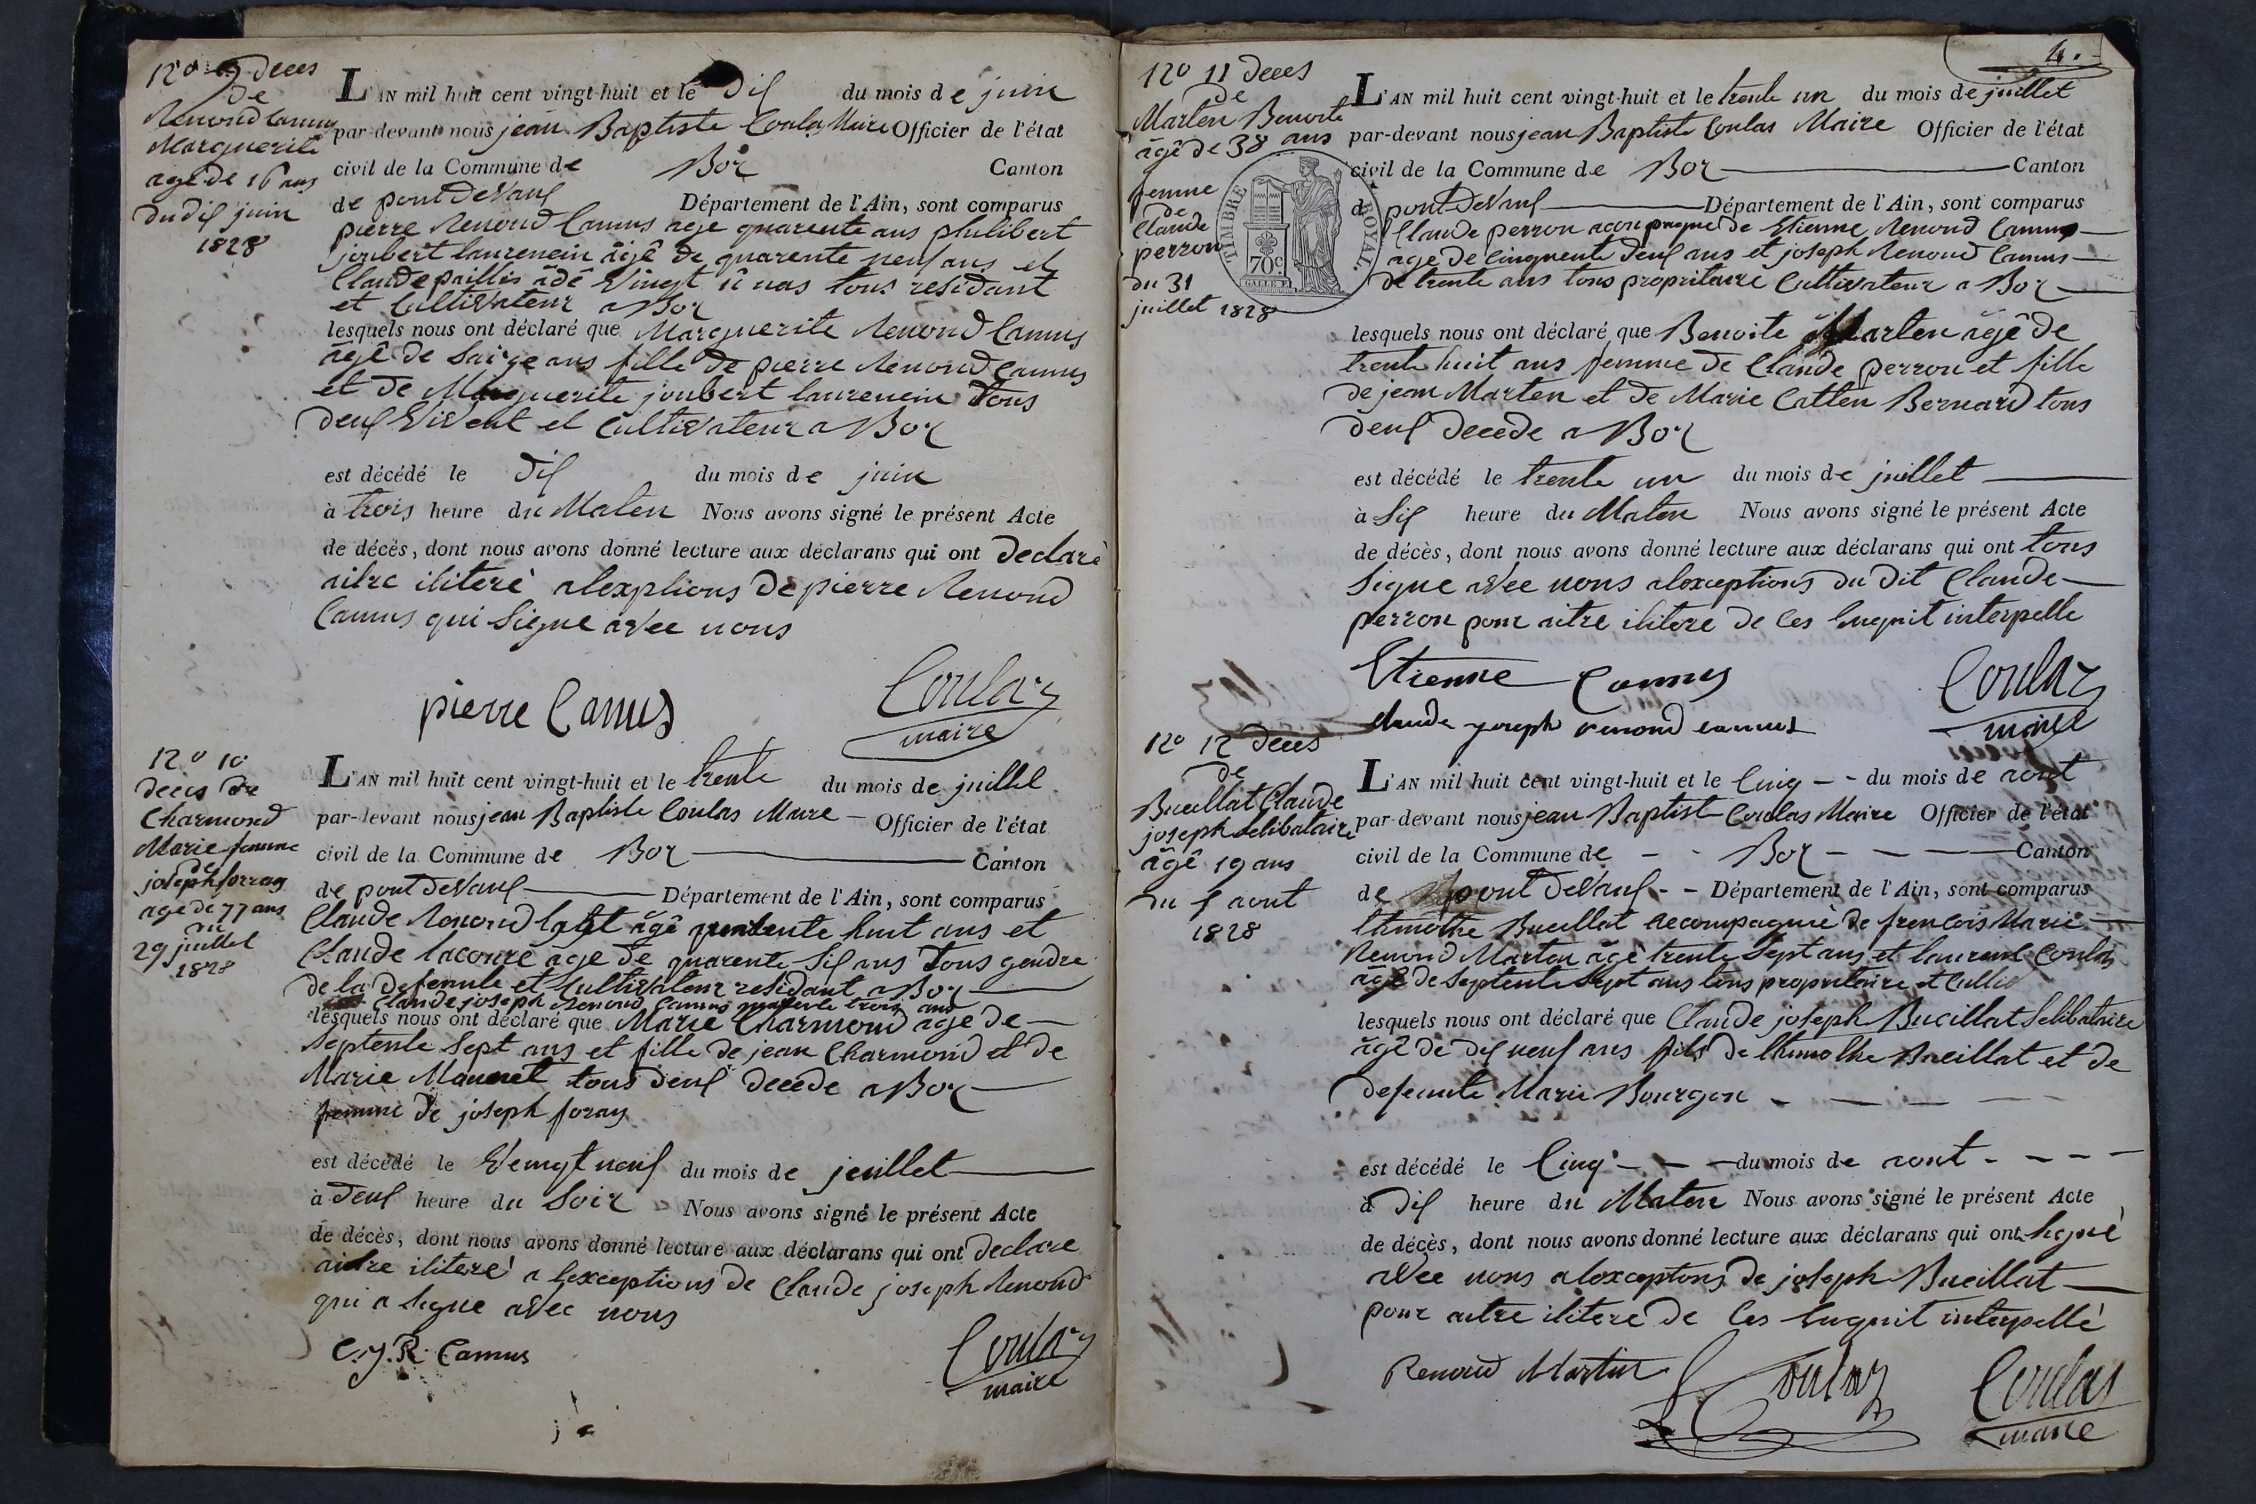 N° 9 Deces
de
Renoud Camus
Marguerite
age de 16 ans
du dix juin
1828
L'AN mil huit cent vingt-huit et le dix du mois de juin
par-devant nous jean Baptiste Coulas Maire Officier de l'état
civil de la Commune de Boz Canton
de pont DeVaux Département de l'Ain, sont comparus
pierre Renoud Camus age quarente ans philibert
joubert laurencin âgê de quarente neuf ans et
Claude paillis âdê Vingt ans tous residant
et CultiVateur a Boz
lesquels nous ont déclaré que Marguerite Renoud Camus
âgê de Saize ans fille de pierre Renoud Camus
et de Marguerite joubert laurencin tous
deux ViVent et CultiVateur a Boz
est décédé le dix du mois de juin
à trois heure du Maten Nous avons signé le présent Acte
de décès, dont nous avons donné lecture aux déclarans qui ont declarè
aitre iliterè alexptions de pierre Renoud
Camus qui Signe aVec nous
pierre Camus
Coulas
maire
N° 10
deces de
Charmond
Marie femme
de
joseph forray
age de 77 ans
du
29 juillet
1828
L'AN mil huit cent vingt-huit et le trente du mois de juillet
par-devant nous jean Baptiste Coulas Maire Officier de l'état
civil de la Commune de Boz Canton
de pont DeVaux Département de l'Ain, sont comparus
Claude Renoud âgê trente huit ans et
Claude lacoure âge de quarente Six ans Tous gendre
de la defente et CultiVateur residant a Boz
Claude joseph Renoud Camus quarente trois ans
lesquels nous ont déclaré que Marie Charmond age de
Septente Sept ans et fille de jean Charmond et de
Marie Mannet tous deux decede a Boz
femme de joseph foray
est décédé le Veingt neuf du mois de jeuillet
à deux heure du Soir Nous avons signé le présent Acte
de décès, dont nous avons donné lecture aux déclarans qui ont declare
aitre iliterè a lexceptions de Claude joseph Renoud
qui a Signe aVec nous
C. J. R. Camus
Coulas
maire
4.
N° 11 Deces
de
Marten Benoite
âgê de 38 ans
femme
de
Claude
perron
du 31
juillet 1828
TIMBRE ROYAL.
70c
L'AN mil huit cent vingt-huit et le trente un du mois de juillet
par-devant nous jean Baptiste Coulas Maire Officier de l'état
civil de la Commune de Boz Canton
d pont DeVaux Département de l'Ain, sont comparus
Claude perron acompagne de Etienne Renoud Camus
age de Cinquente deux ans et joseph Renoud Camus
de trente ans tous propritaire CultiVateur a Boz
lesquels nous ont déclaré que Benoite Marten âgê de
trente huit ans femme de Claude perron et fille
de jean Marten et de Marie Catten Bernard tous
deux decede a Boz
est décédé le trente un du mois de juillet
à Six heure du Maten Nous avons signé le présent Acte
de décès, dont nous avons donné lecture aux déclarans qui ont tous
Signe aVec nous alexceptions du dit Claude
perron pour aitre ilitere de Ces Enquit interpelle
Etienne Camus
Claude joseph renoud camus
Coulas
maire
N° 12 Deces
de
Bucillat Claude
joseph Selibataire
âgê 19 ans
du 5 aout
1828
L'AN mil huit cent vingt-huit et le Cinq du mois de aout
par-devant nous jean Baptist Coulas Maire Officier de l'état
civil de la Commune de Boz Canton
de pont DeVaux Département de l'Ain, sont comparus
thimothe Bucillat accompagniè de frencois Marie
Renoud Marten âgè trente Sept ans et laurent Coulas
âgê de Septente Sept ans tous propritaire et Culti
lesquels nous ont déclaré que Claude joseph Bucillat Selibataire
âgê de dix neuf ans fils de thimothe Bucillat et de
defeunte Marie Bourgon
est décédé le Cinq du mois de aout
à dix heure du Maten Nous avons signé le présent Acte
de décès, dont nous avons donné lecture aux déclarans qui ont Signè
aVec nous alexceptons de joseph Bucillat
pour aitre ilitere de Ces Enquit interpellè
Renoud Martin
L. Coulas
Coulas
maire